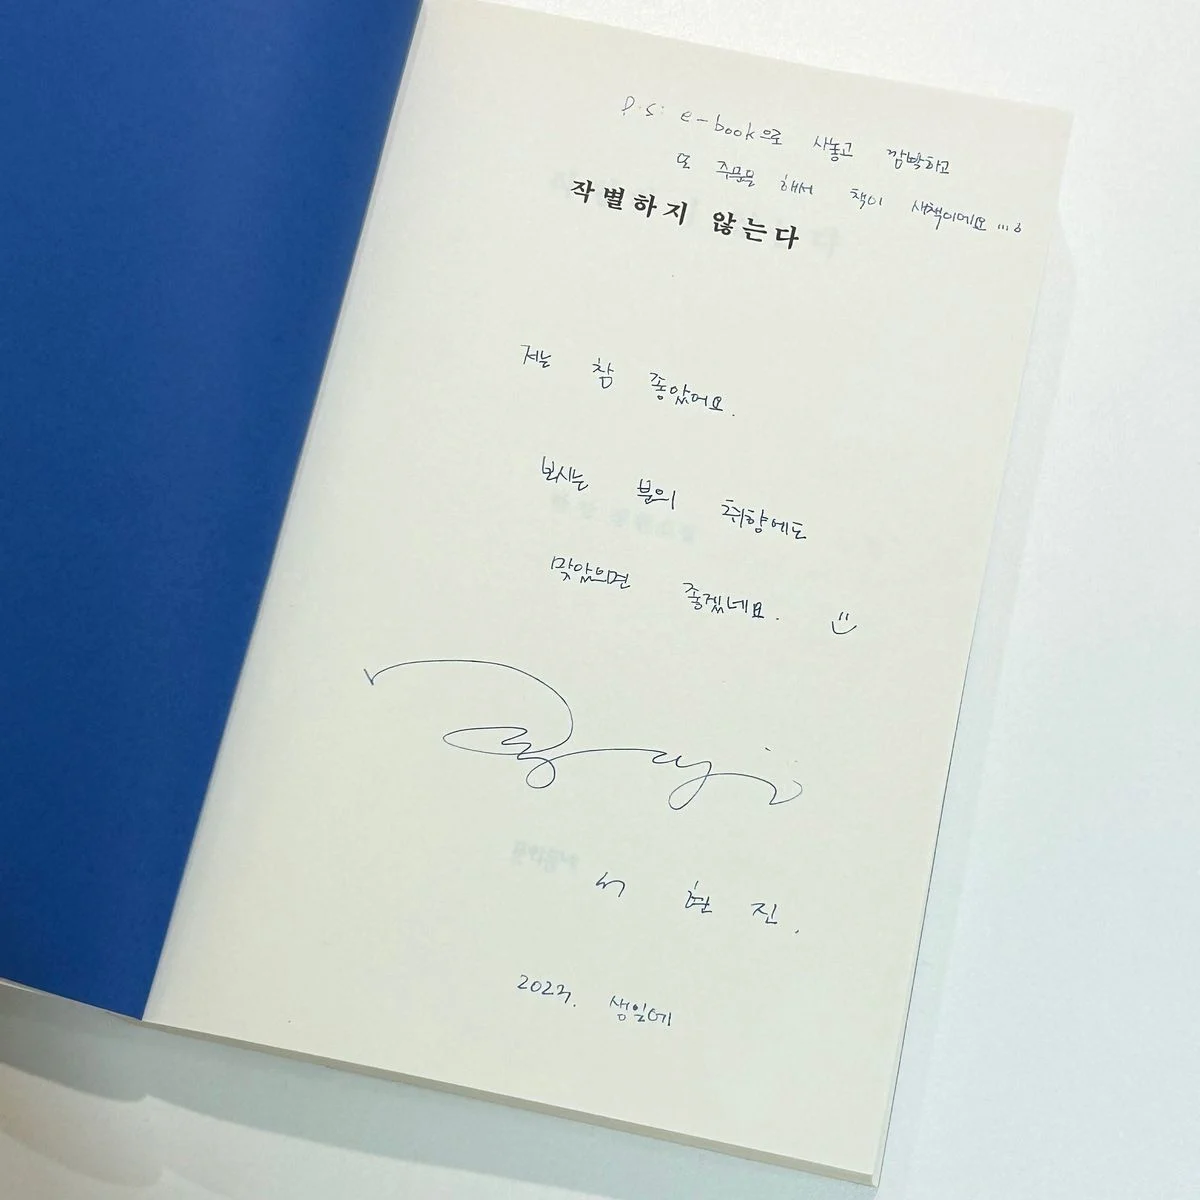 P.S: e-book으로 사놓고 깜빡하고
또 주문을 해서 책이 새책이에요...!
작별하지 않는다
저는 참 좋았어요.
보시는 분의 취향에도
맞았으면 좋겠네요.
서 현 진.
2023. 생일에